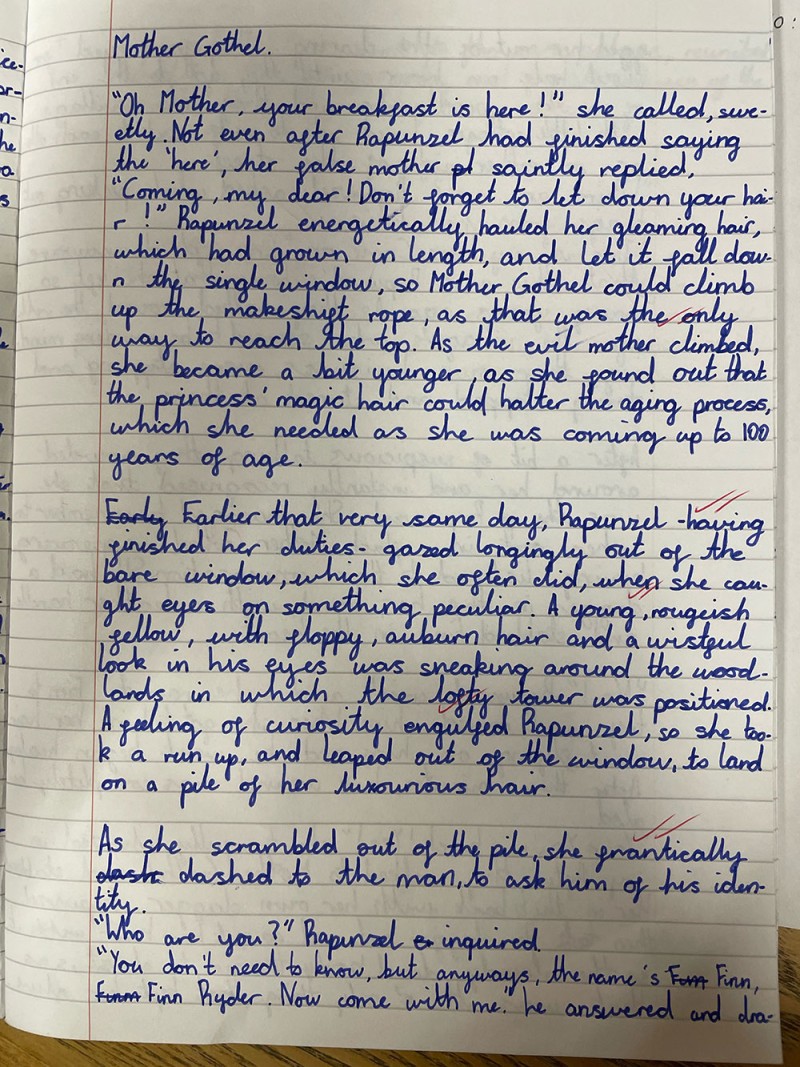 Mother Gothel.
"Oh Mother, your breakfast is here!" she called, swe-
etly. Not even after Rapunzel had finished saying
the 'here', her false mother pt saintly replied,
"Coming, my dear! Don't forget to let down your hai-
r !" Rapunzel energetically hauled her gleaming hair,
which had grown in length, and let it fall dow-
n the single window, so Mother Gothel could climb
up the makeshift rope, as that was the only
way to reach the top. As the evil mother climbed,
she became a bit younger, as she found out that
the princess' magic hair could halter the aging process,
which she needed as she was coming up to 100
years of age.
Early Earlier that very same day, Rapunzel -having
finished her duties- gazed longingly out of the
bare window, which she often did, when she cau-
ght eyes on something peculiar. A young, rougeish
fellow, with floppy, auburn hair and a wistful
look in his eyes was sneaking around the wood-
lands in which the lofty tower was positioned.
A feeling of curiosity engulfed Rapunzel, so she too-
k a run up, and leaped out of the window, to land
on a pile of her luxourious hair.
As she scrambled out of the pile, she frantically
dash dashed to the man, to ask him of his iden-
tity.
"Who are you?" Rapunzel inquired.
"You don't need to know, but anyways, the name's Finn,
Finn Ryder. Now come with me." he answered and dra-